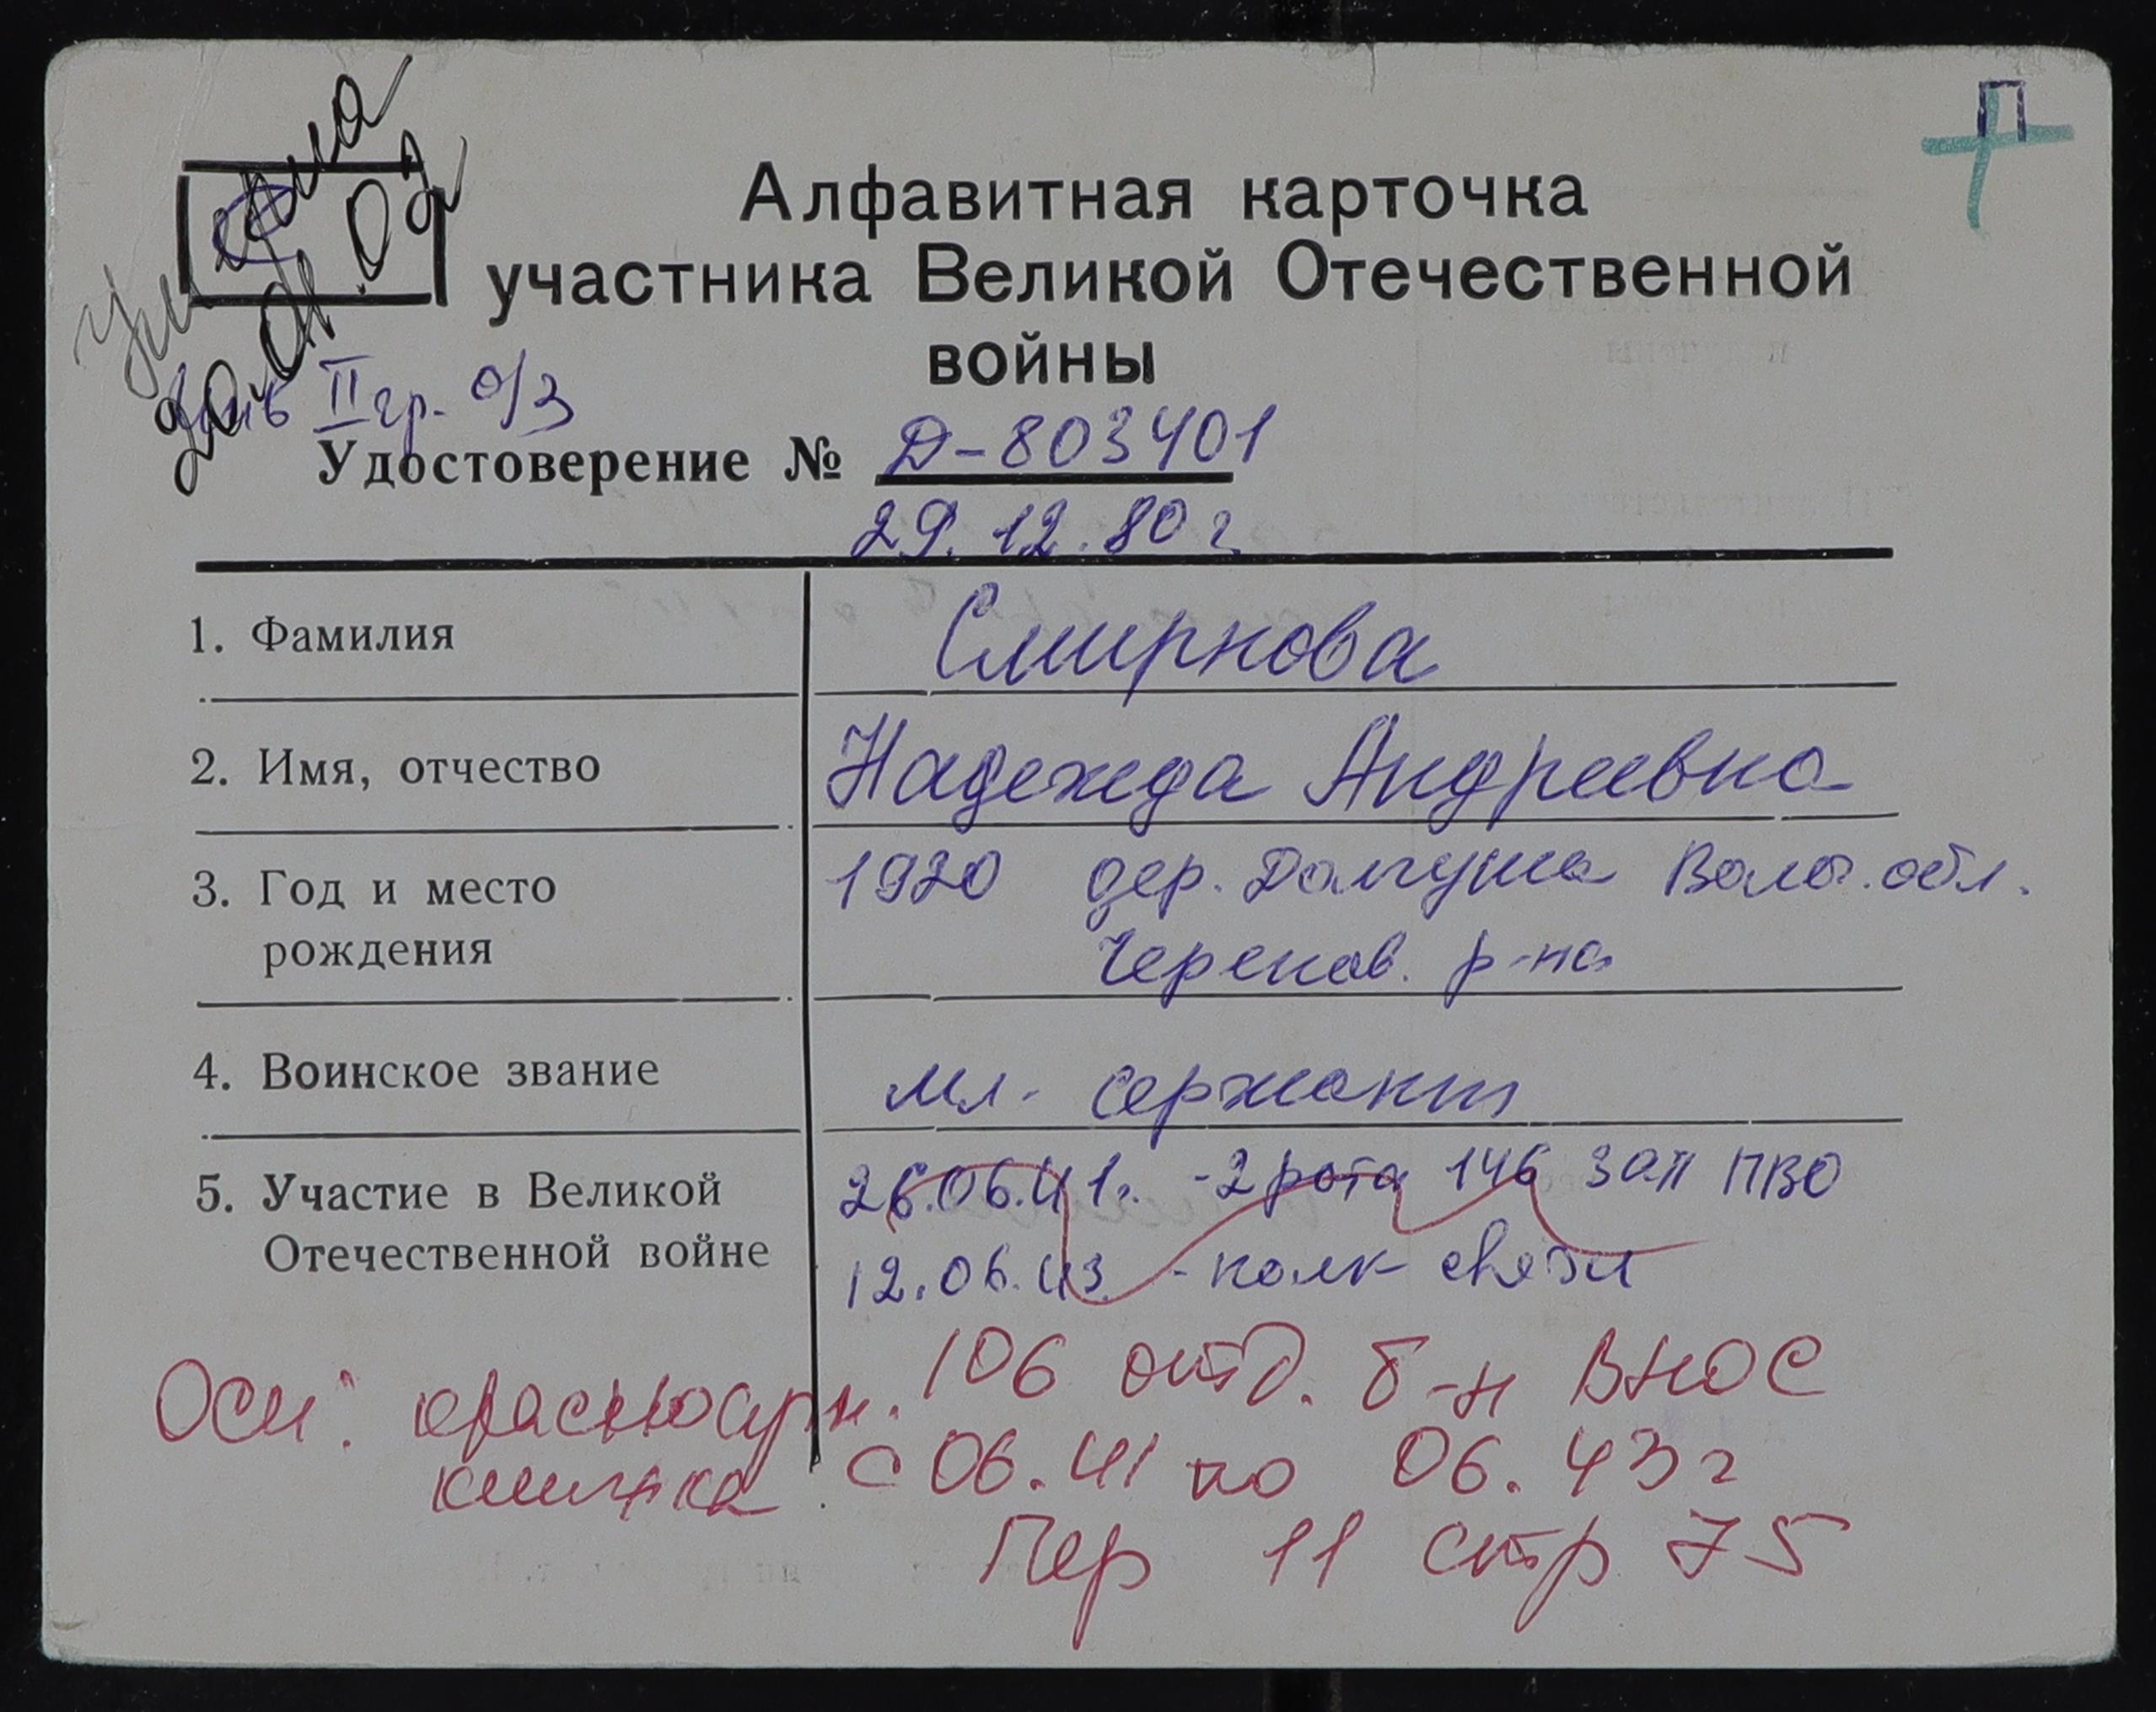 умерла
20.01.09г
П
Алфавитная карточка
участника Великой Отечественной
войны
инв II гр. о/з
Удостоверение № Д-803401
29.12.80г
1. Фамилия Смирнова
2. Имя, отчество Надежда Андреевна
3. Год и место 1920 дер. Долгуша Волог. обл.
рождения Черепов. р-на
4. Воинское звание мл. сержант
5. Участие в Великой 26.06.41г. - 2 рота 146 ЗАП ПВО
Отечественной войне 12.06.43 - полк связи
Осн: красноарм. 106 отд. б-н ВНОС
книжка. с 06.41 по 06.43г
Пер 11 стр 75